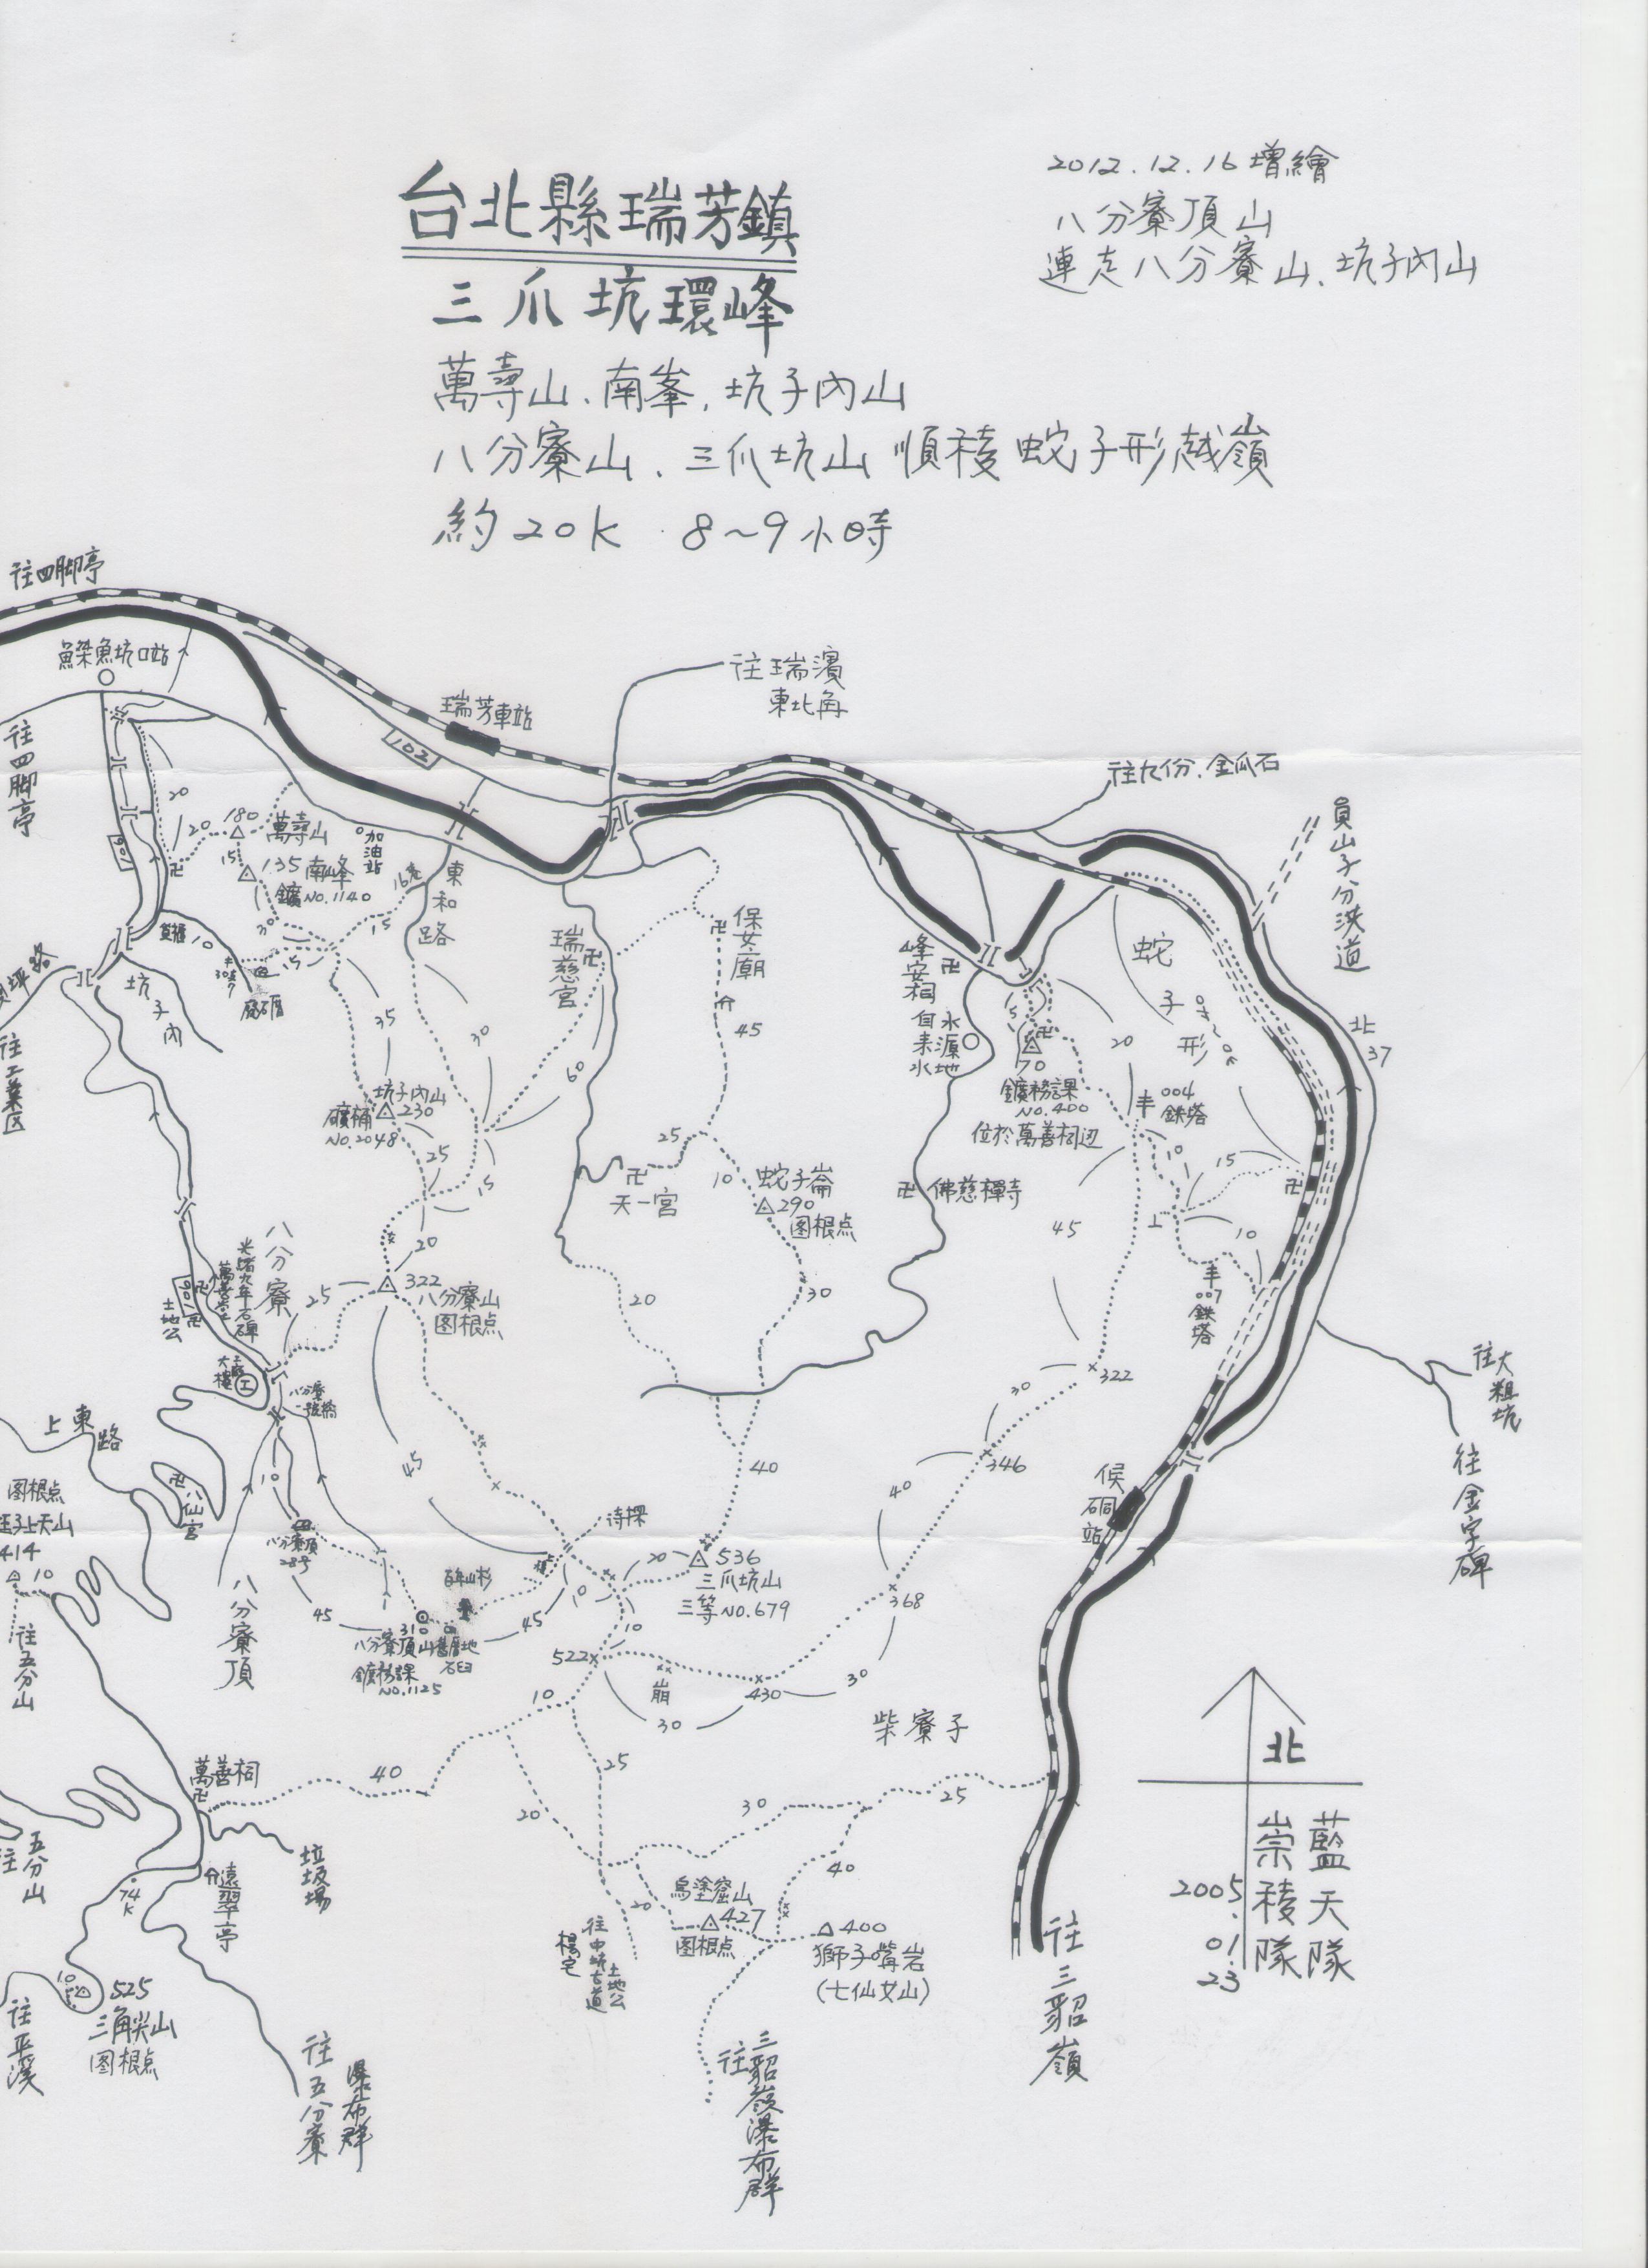 台北縣瑞芳鎮
三爪坑環峰
萬壽山、南峯、坑子內山
八分寮山、三爪坑山 順稜 蛇子形越嶺
約20K 8~9小時
2012.12.16 增繪
八分寮頂山
連走八分寮山、坑子內山
往四脚亭
鰈魚坑口站
往四脚亭
瑞芳車站
102
往瑞濱
東北角
往九份、金瓜石
員山子分洪道
180
萬壽山
135 南峰
鑛NO.1140
加油站
東和路
瑞慈宮
保安廟
峰安祠
自來水
水源地
蛇子形
北37
20
20
15
30
10
15
15
35
30
60
45
5
20
坑子內
坑子內山
230
礦桶
NO.2048
70
鑛務課
NO.400
位於萬善祠辺
004
鉄塔
25
15
25
10
10
15
天一宮
蛇子崙
290
图根点
佛慈禪寺
45
10
007
鉄塔
106
往工業区
八分寮
土地公
106
25
20
322
八分寮山
图根点
20
30
322
30
346
往大粗坑
往金字碑
上東路
八仙宮
图根点
414
10
往五分山
10
45
40
40
候硐站
待探
八分寮頂
28号
百年山杉
20
536
三爪坑山
三等NO.679
368
八分寮頂
45
310
八分寮頂山
鑛務課
NO.1125
舊厝地
石臼
45
10
10
522
崩
430
30
30
10
柴寮子
北
萬善祠
40
25
20
30
25
往五分山
垃圾場
遠翠亭
74K
40
烏塗窟山
427
图根点
20
400
獅子嘴岩
(七仙女山)
往中坑古道
土地公
楊宅
10
525
三角尖山
图根点
往平溪
往五分寮
瀑布群
往三貂嶺瀑布群
往三貂嶺
藍天隊
崇稜隊
2005.01.23